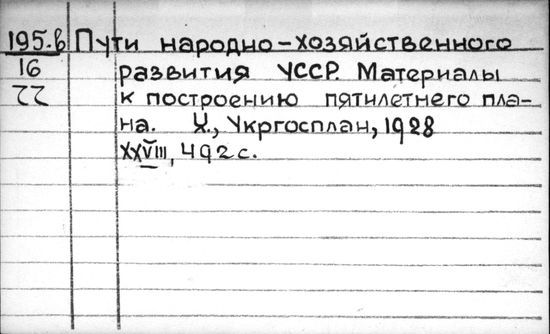 195.в Пути народно-хозяйственного
16 развития УССР. Материалы
22 к построению пятилетнего пла-
на. Х., Укргосплан, 1928
XXVIII, 492 с.